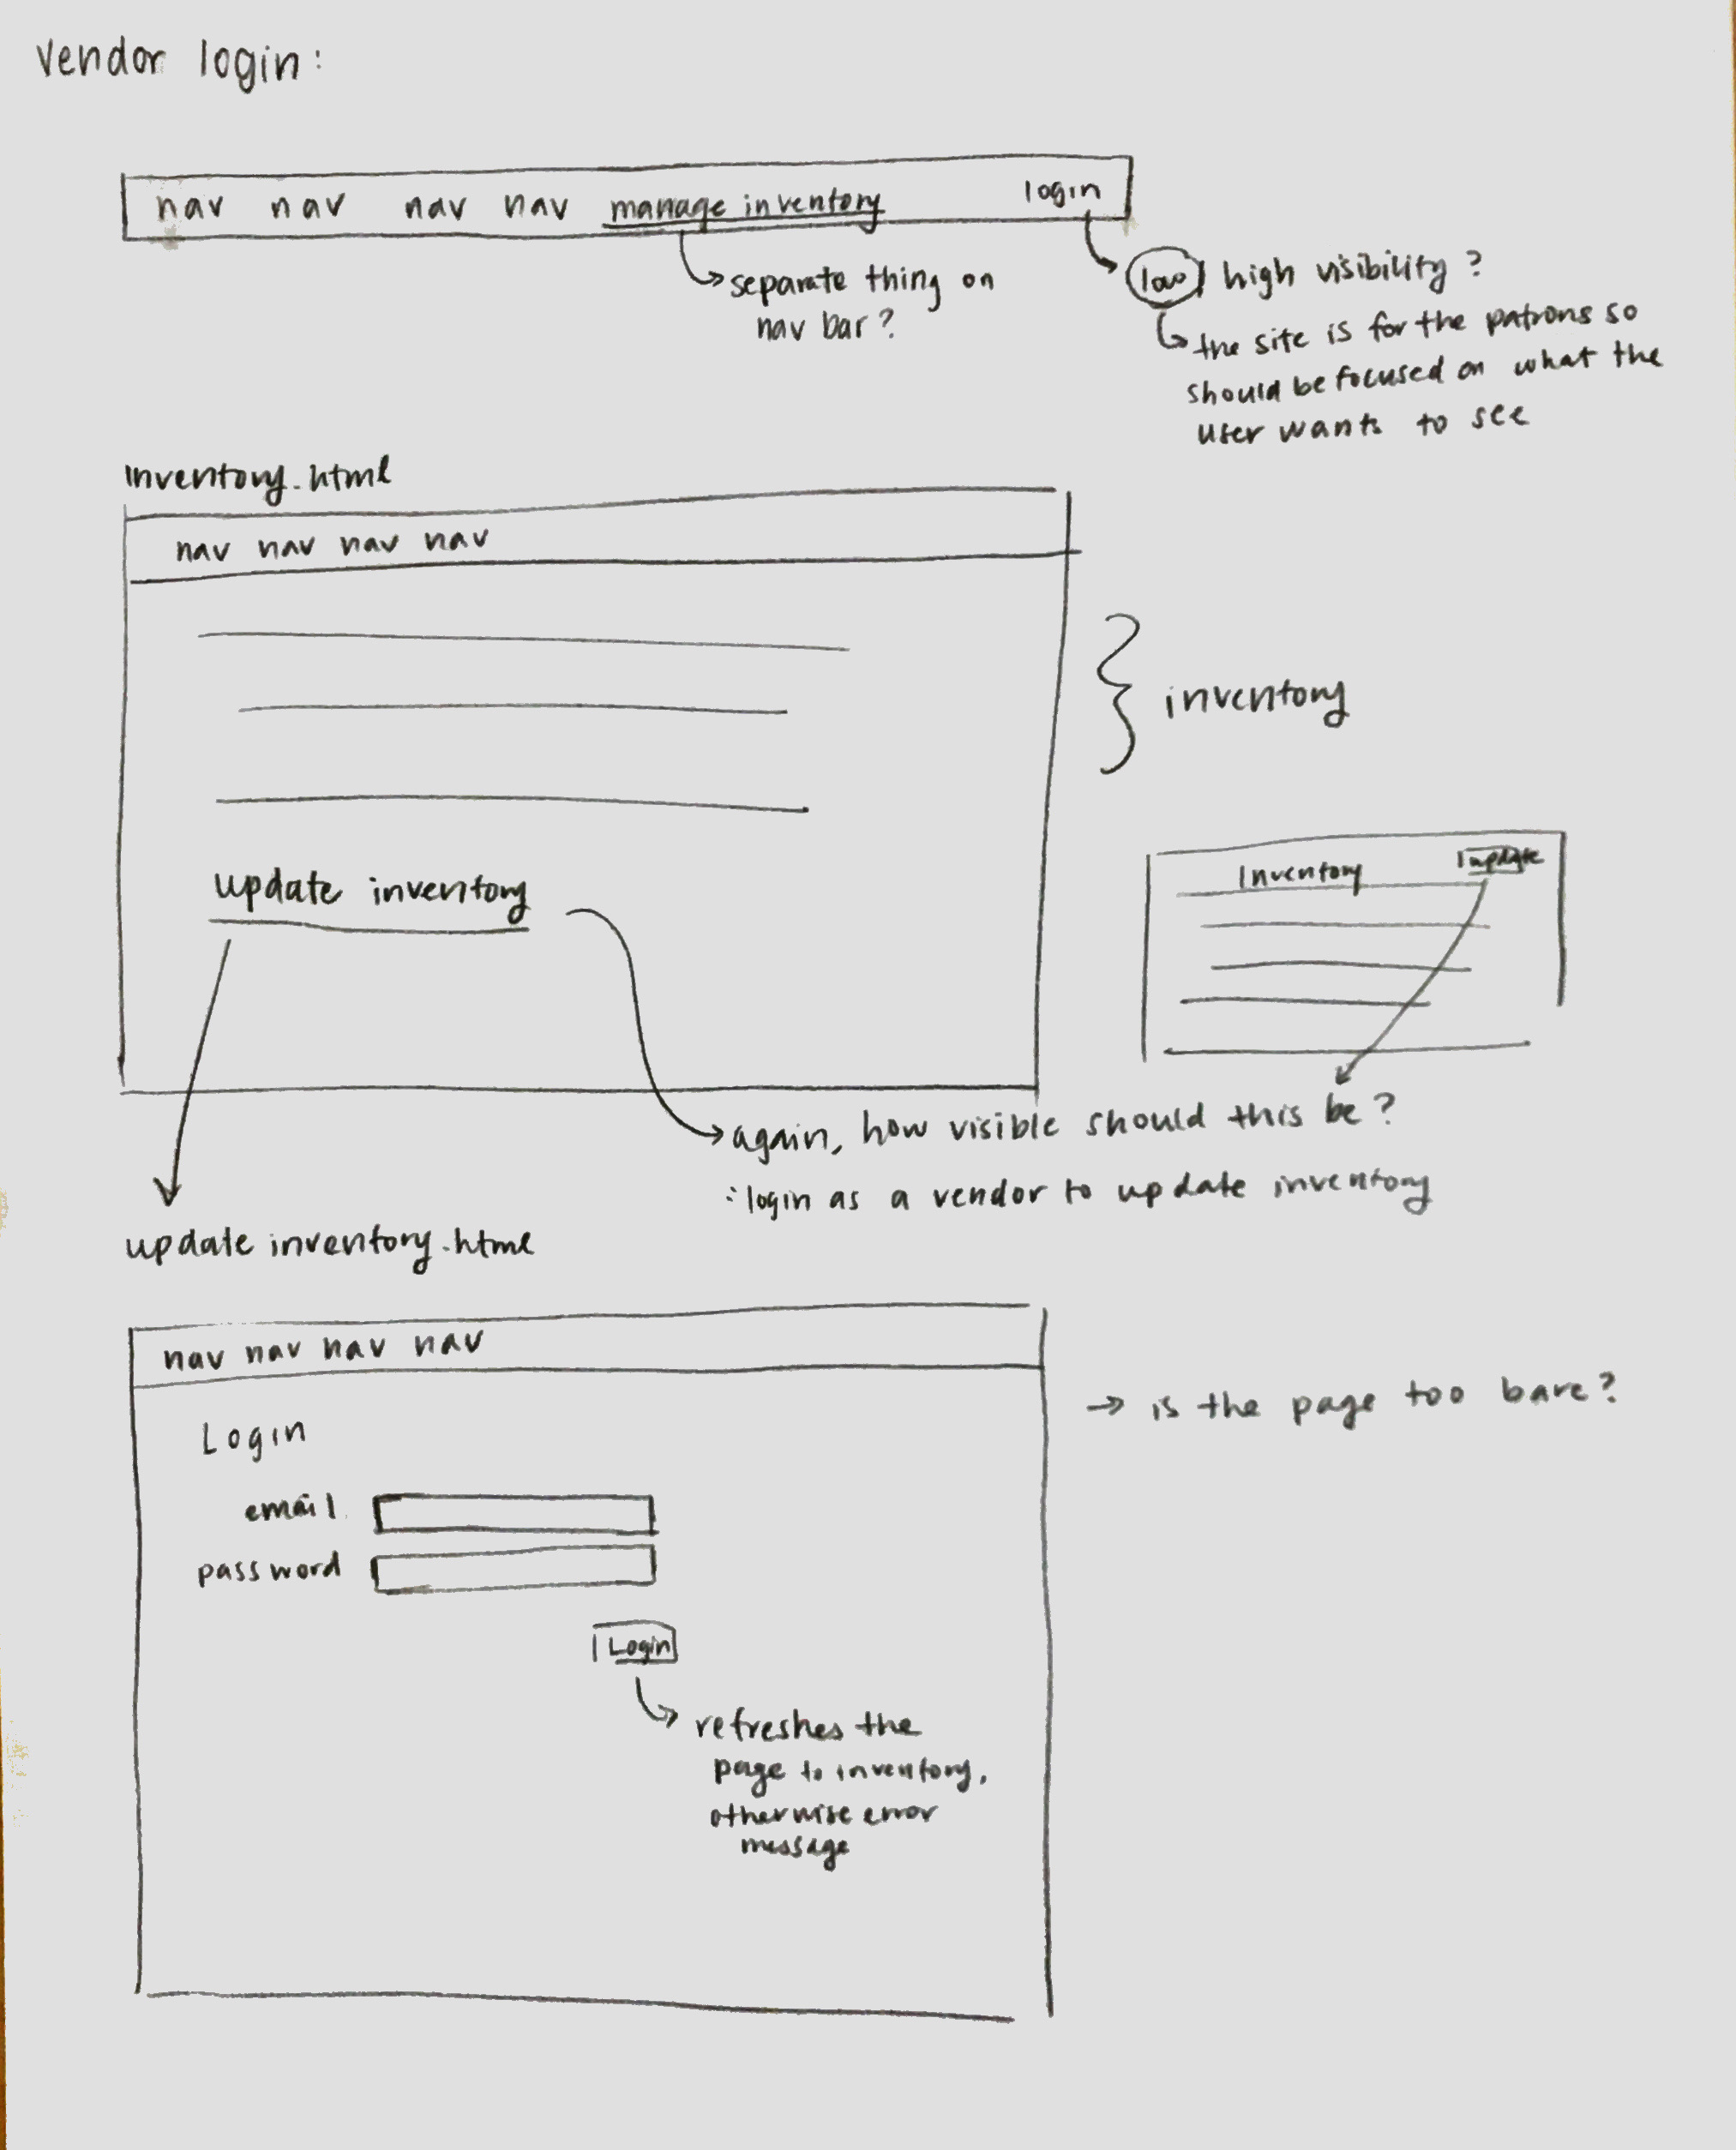 vendor login:
nav nav nav nav manage inventory login
separate thing on
nav bar?
low / high visibility?
the site is for the patrons so
should be focused on what the
user wants to see
inventory.html
nav nav nav nav
inventory
update inventory
Inventory update
again, how visible should this be?
: login as a vendor to update inventory
update inventory.html
nav nav nav nav
is the page too bare?
Login
email
password
Login
refreshes the
page to inventory,
otherwise error
message